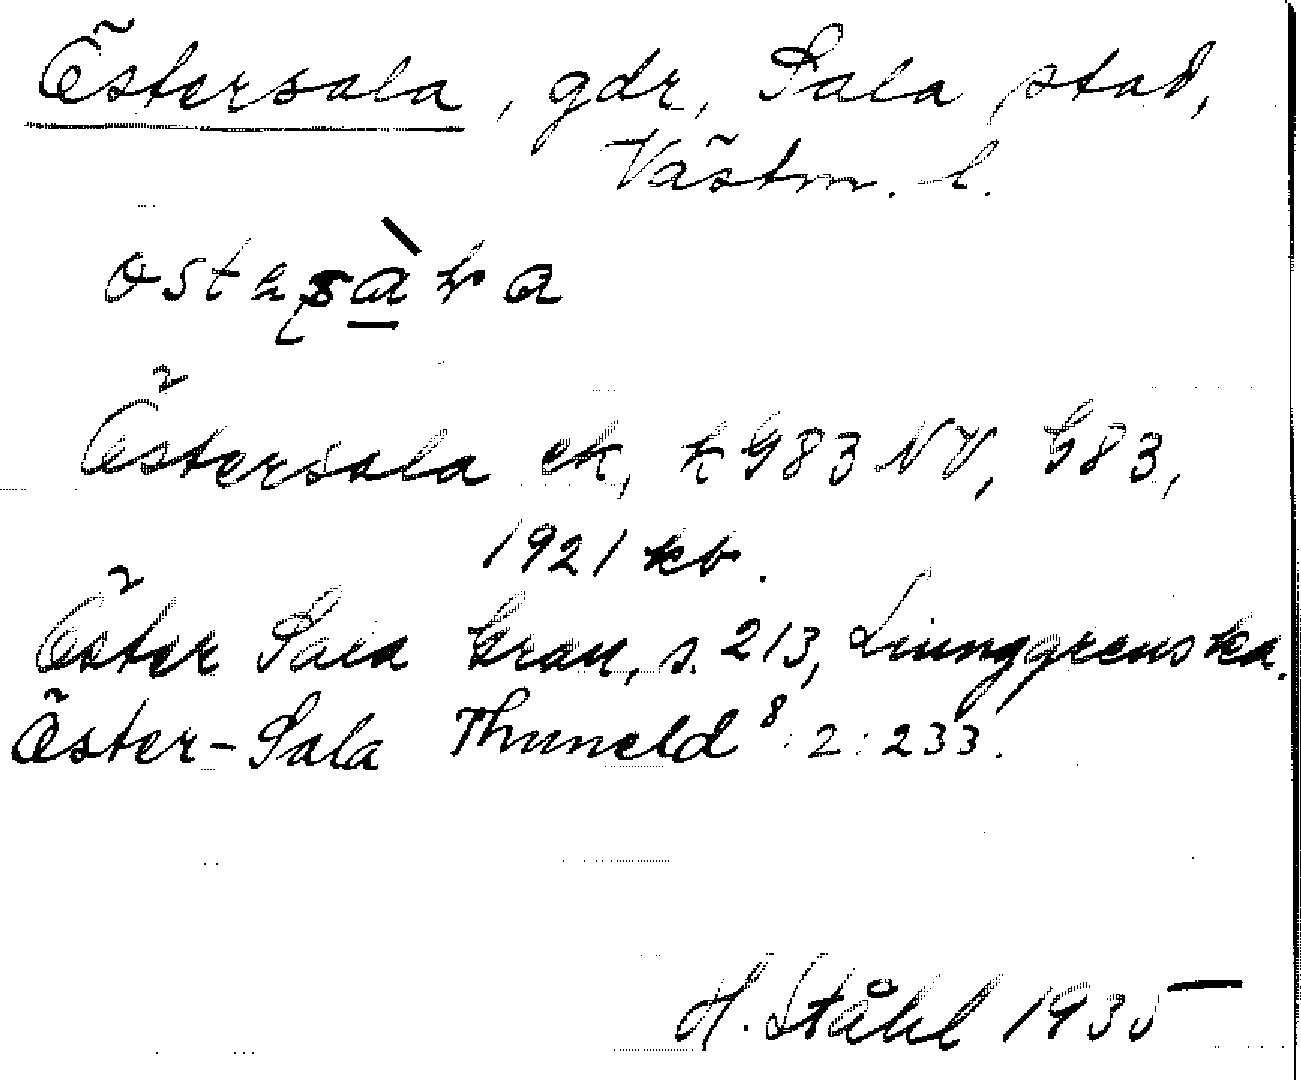 Östersala, gdr, Sala stad,
Västm. l.
Östersala ek, k G83 NV, G83,
1921 kb.
Öster Sala Grau, s. 213, Ljunggrenska.
Öster-Sala Thuneld⁸: 2: 233.
H. Ståhl 1935